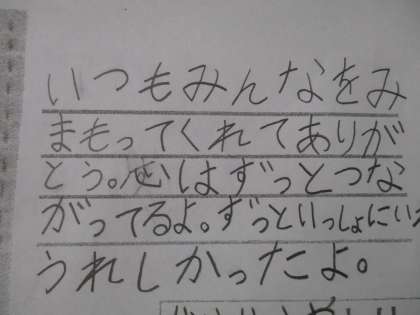 いつもみんなをみ
まもってくれてありが
とう。心はずっとつな
がってるよ。ずっといっしょにい
うれしかったよ。